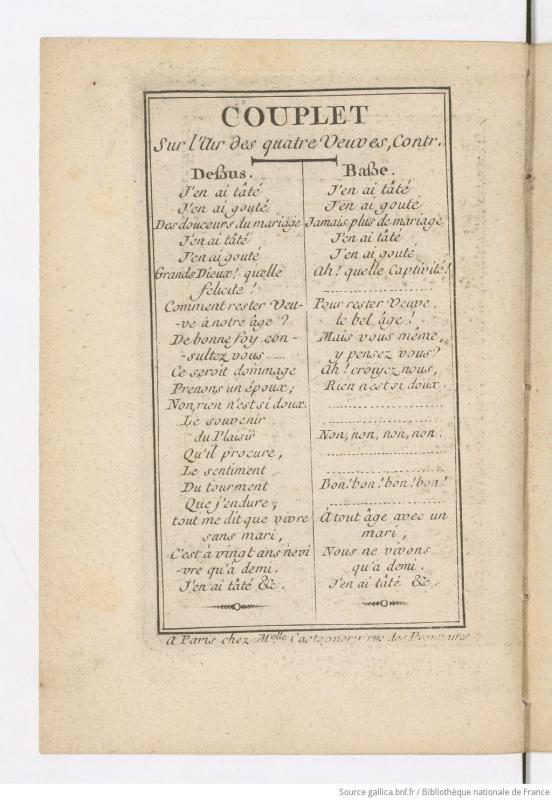 COUPLET
Sur l'Air des quatre Veuves, Contr.
Deßus.
J'en ai tâté
J'en ai gouté
Des douceurs du mariage
J'en ai tâté
J'en ai gouté
Grands Dieux! quelle
félicité!
Comment rester Veu-
-ve à notre âge?
De bonne foy con-
-sultez vous........
Ce seroit dommage
Prenons un époux;
Non, rien n'est si doux.
Le souvenir
du Plaisir
Qu'il procure,
Le sentiment
Du tourment
Que j'endure;
tout me dit que vivre
sans mari,
C'est à vingt ans ne vi
-vre qu'à demi.
J'en ai tâté &c.
Baße.
J'en ai tâté
J'en ai gouté
Jamais plus de mariage
J'en ai tâté
J'en ai gouté
Ah! quelle Captivité!
........................
Pour rester Veuve,
le bel âge!
Mais vous même,
y pensez vous?
Ah! croyez nous,
Rien n'est si doux.
........................
........................
Non, non, non, non.
........................
........................
Bon! bon! bon! bon!
........................
À tout âge avec un
mari,
Nous ne vivons
qu'à demi.
J'en ai tâté &c.
A Paris chez Melle Castagnery rue des Prouvaires
Source gallica.bnf.fr / Bibliothèque nationale de France